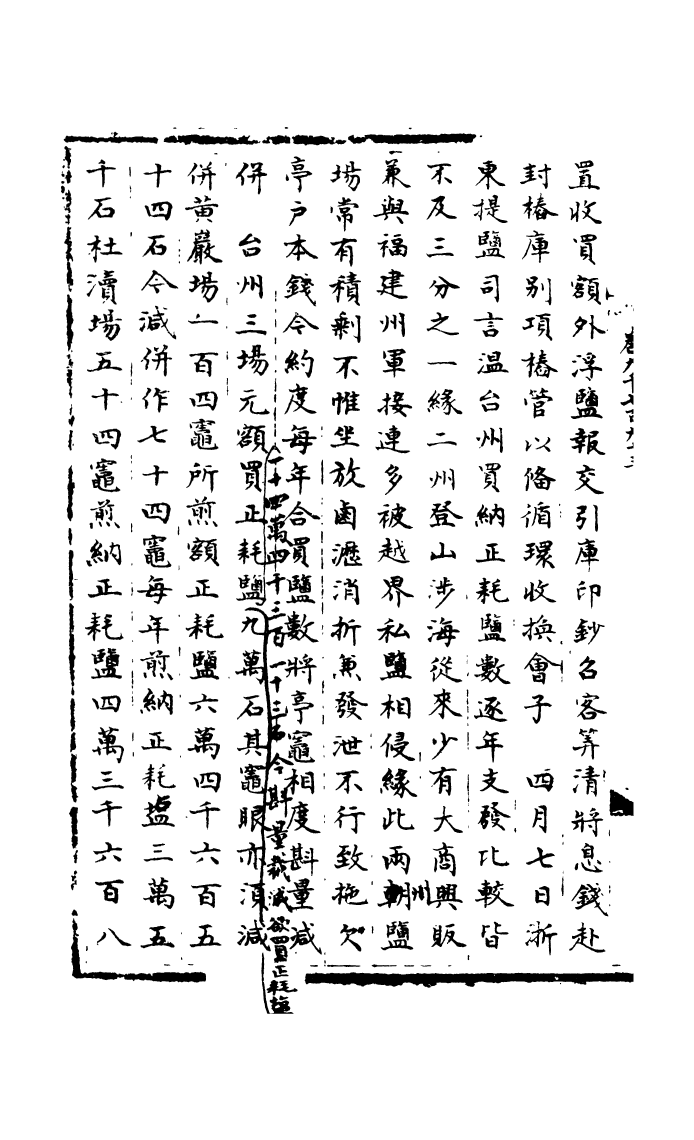 置收買額外浮鹽報交引庫印鈔召客筭清將息錢赴
封樁庫別項樁管以俻循環收換會子　四月七日浙
東提鹽司言温台州買納正耗鹽數逐年支發比較皆
不及三分之一緣二州登山涉海從來少有大商興販
兼與福建州軍接連多被越界私鹽相侵緣此兩州鹽
場常有積剩不惟坐放鹵瀝消折兼發泄不行致拖欠
亭戶本錢今約度每年合買鹽數將亭竈相度斟量减
一十四萬四千三百一十三石今斟量裁減欲買正耗鹽
併　台州三場元額買正耗鹽九萬石其竈眼亦須減
併黃巖場一百四竈所煎額正耗鹽六萬四千六百五
十四石今減併作七十四竈每年煎納正耗塩三萬五
千石杜瀆場五十四竈煎納正耗鹽四萬三千六百八